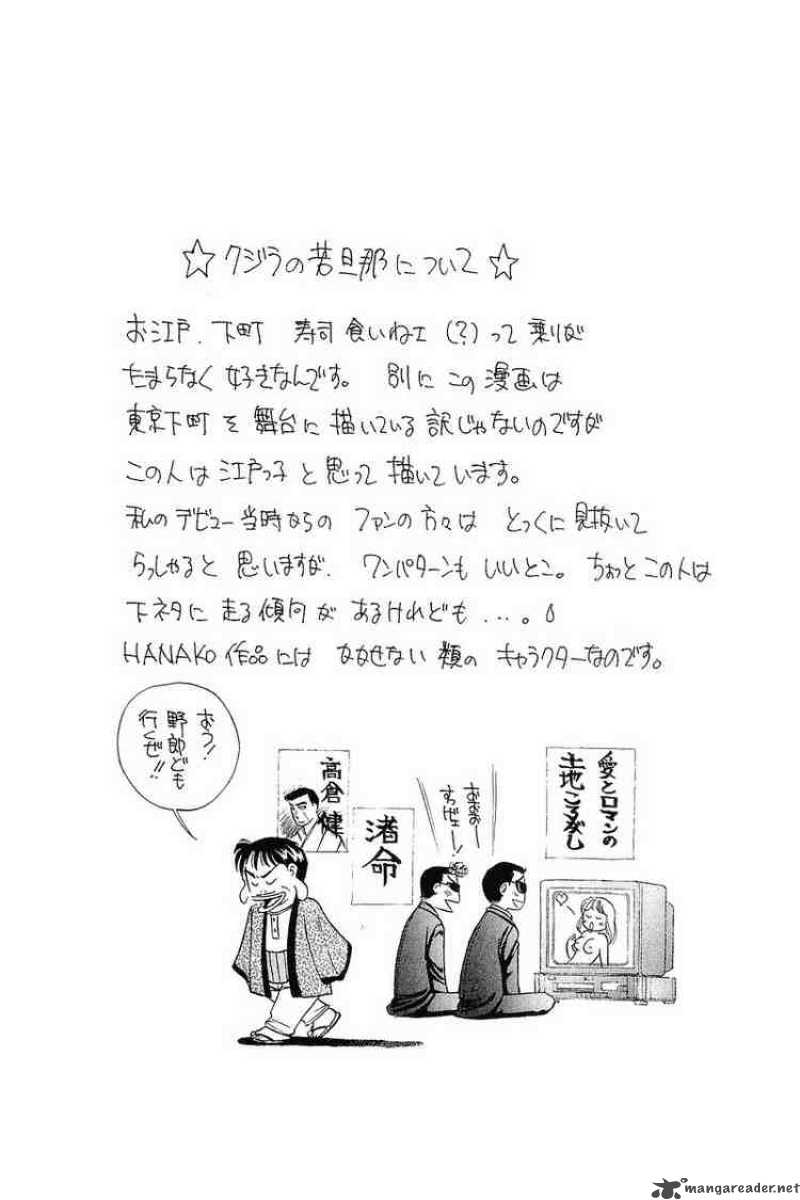 ☆クジラの若旦那について☆
お江戸、下町　寿司食いねェ（？）って乗りが
たまらなく好きなんです。　別にこの漫画は
東京下町を舞台に描いている訳じゃないのですが
この人は江戸っ子と思って描いています。
私のデビュー当時からの　ファンの方々は　とっくに見抜いて
らっしゃると思いますが、　ワンパターンもいいとこ。ちょっとこの人は
下ネタに走る傾向があるけれども…。
HANAKO作品には　かかせない類のキャラクターなのです。
おう！
野郎ども
行くぜ!!
高倉健
渚命
おおおー
すっげェー！
愛とロマンの
土地ころがし
mangareader.net